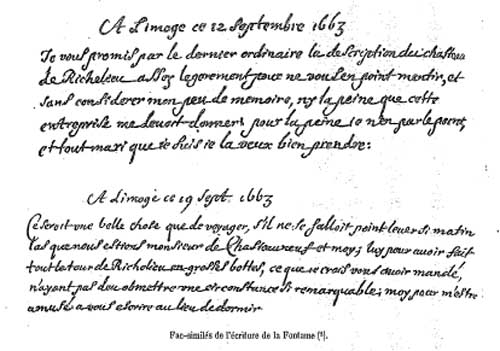 A Limoge ce 12 Septembre 1663
Je vous promis par le dernier ordinaire la description du chasteau
de Richelieu assez legerement pour ne vous en point mentir, et
sans considerer mon peu de memoire, ny la peine que cette
entreprise me devoit donner; pour la peine je n'en parle point,
et tout mari que je suis je la veux bien prendre:
A Limoge ce 19 Sept. 1663
Ce seroit une belle chose que de voyager, s'il ne se falloit point lever si matin
las que nous estions monsieur de Chasteauneuf et moy; luy pour avoir fait
tout le tour de Richelieu en grosses bottes, ce que je crois vous avoir mandé,
n'ayant pas deu obmettre une circonstance si remarquable; moy pour m'estre
amusé a vous escrire au lieu de dormir
Fac-similés de l'écriture de la Fontaine (¹).